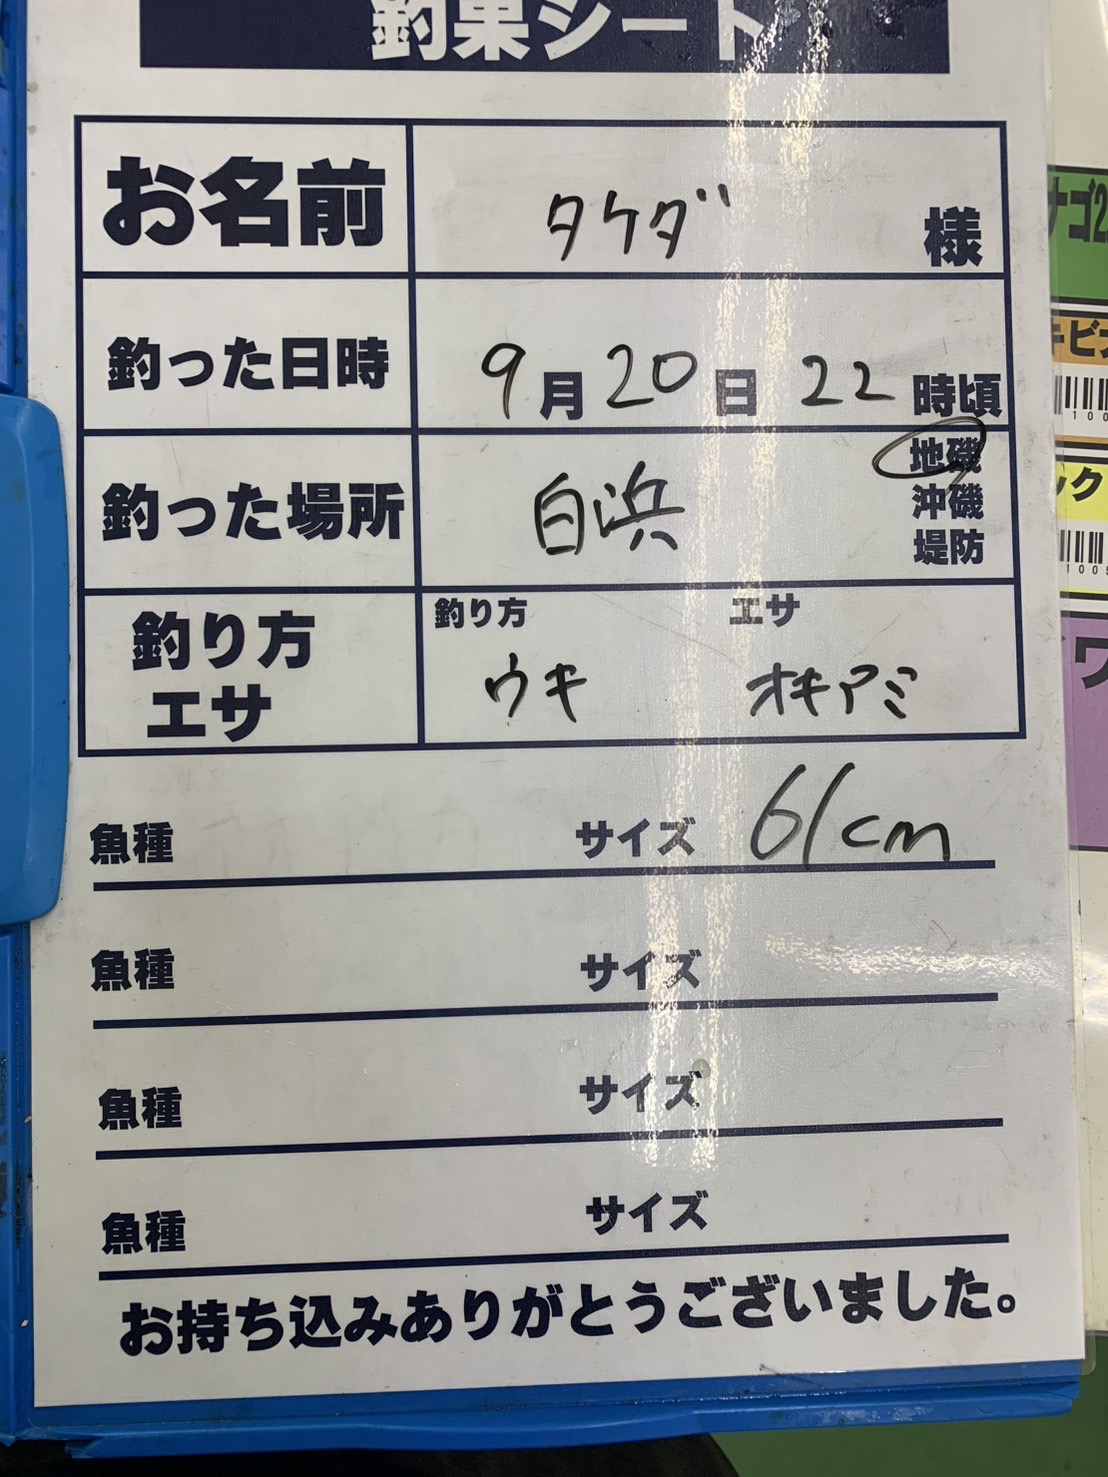 釣果シート
お名前 タケダ 様
釣った日時 9月20日 22時頃
釣った場所 白浜 地磯
沖磯
堤防
釣り方 エサ
釣り方 ウキ オキアミ
エサ
魚種 サイズ 61cm
魚種 サイズ
魚種 サイズ
魚種 サイズ
お持ち込みありがとうございました。
ナゴ2
キビナ
100
ック
1005
ワ